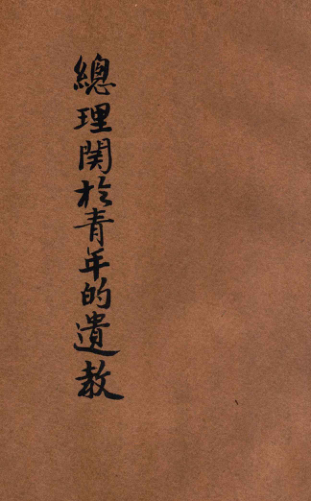 總理関於青年的遺教